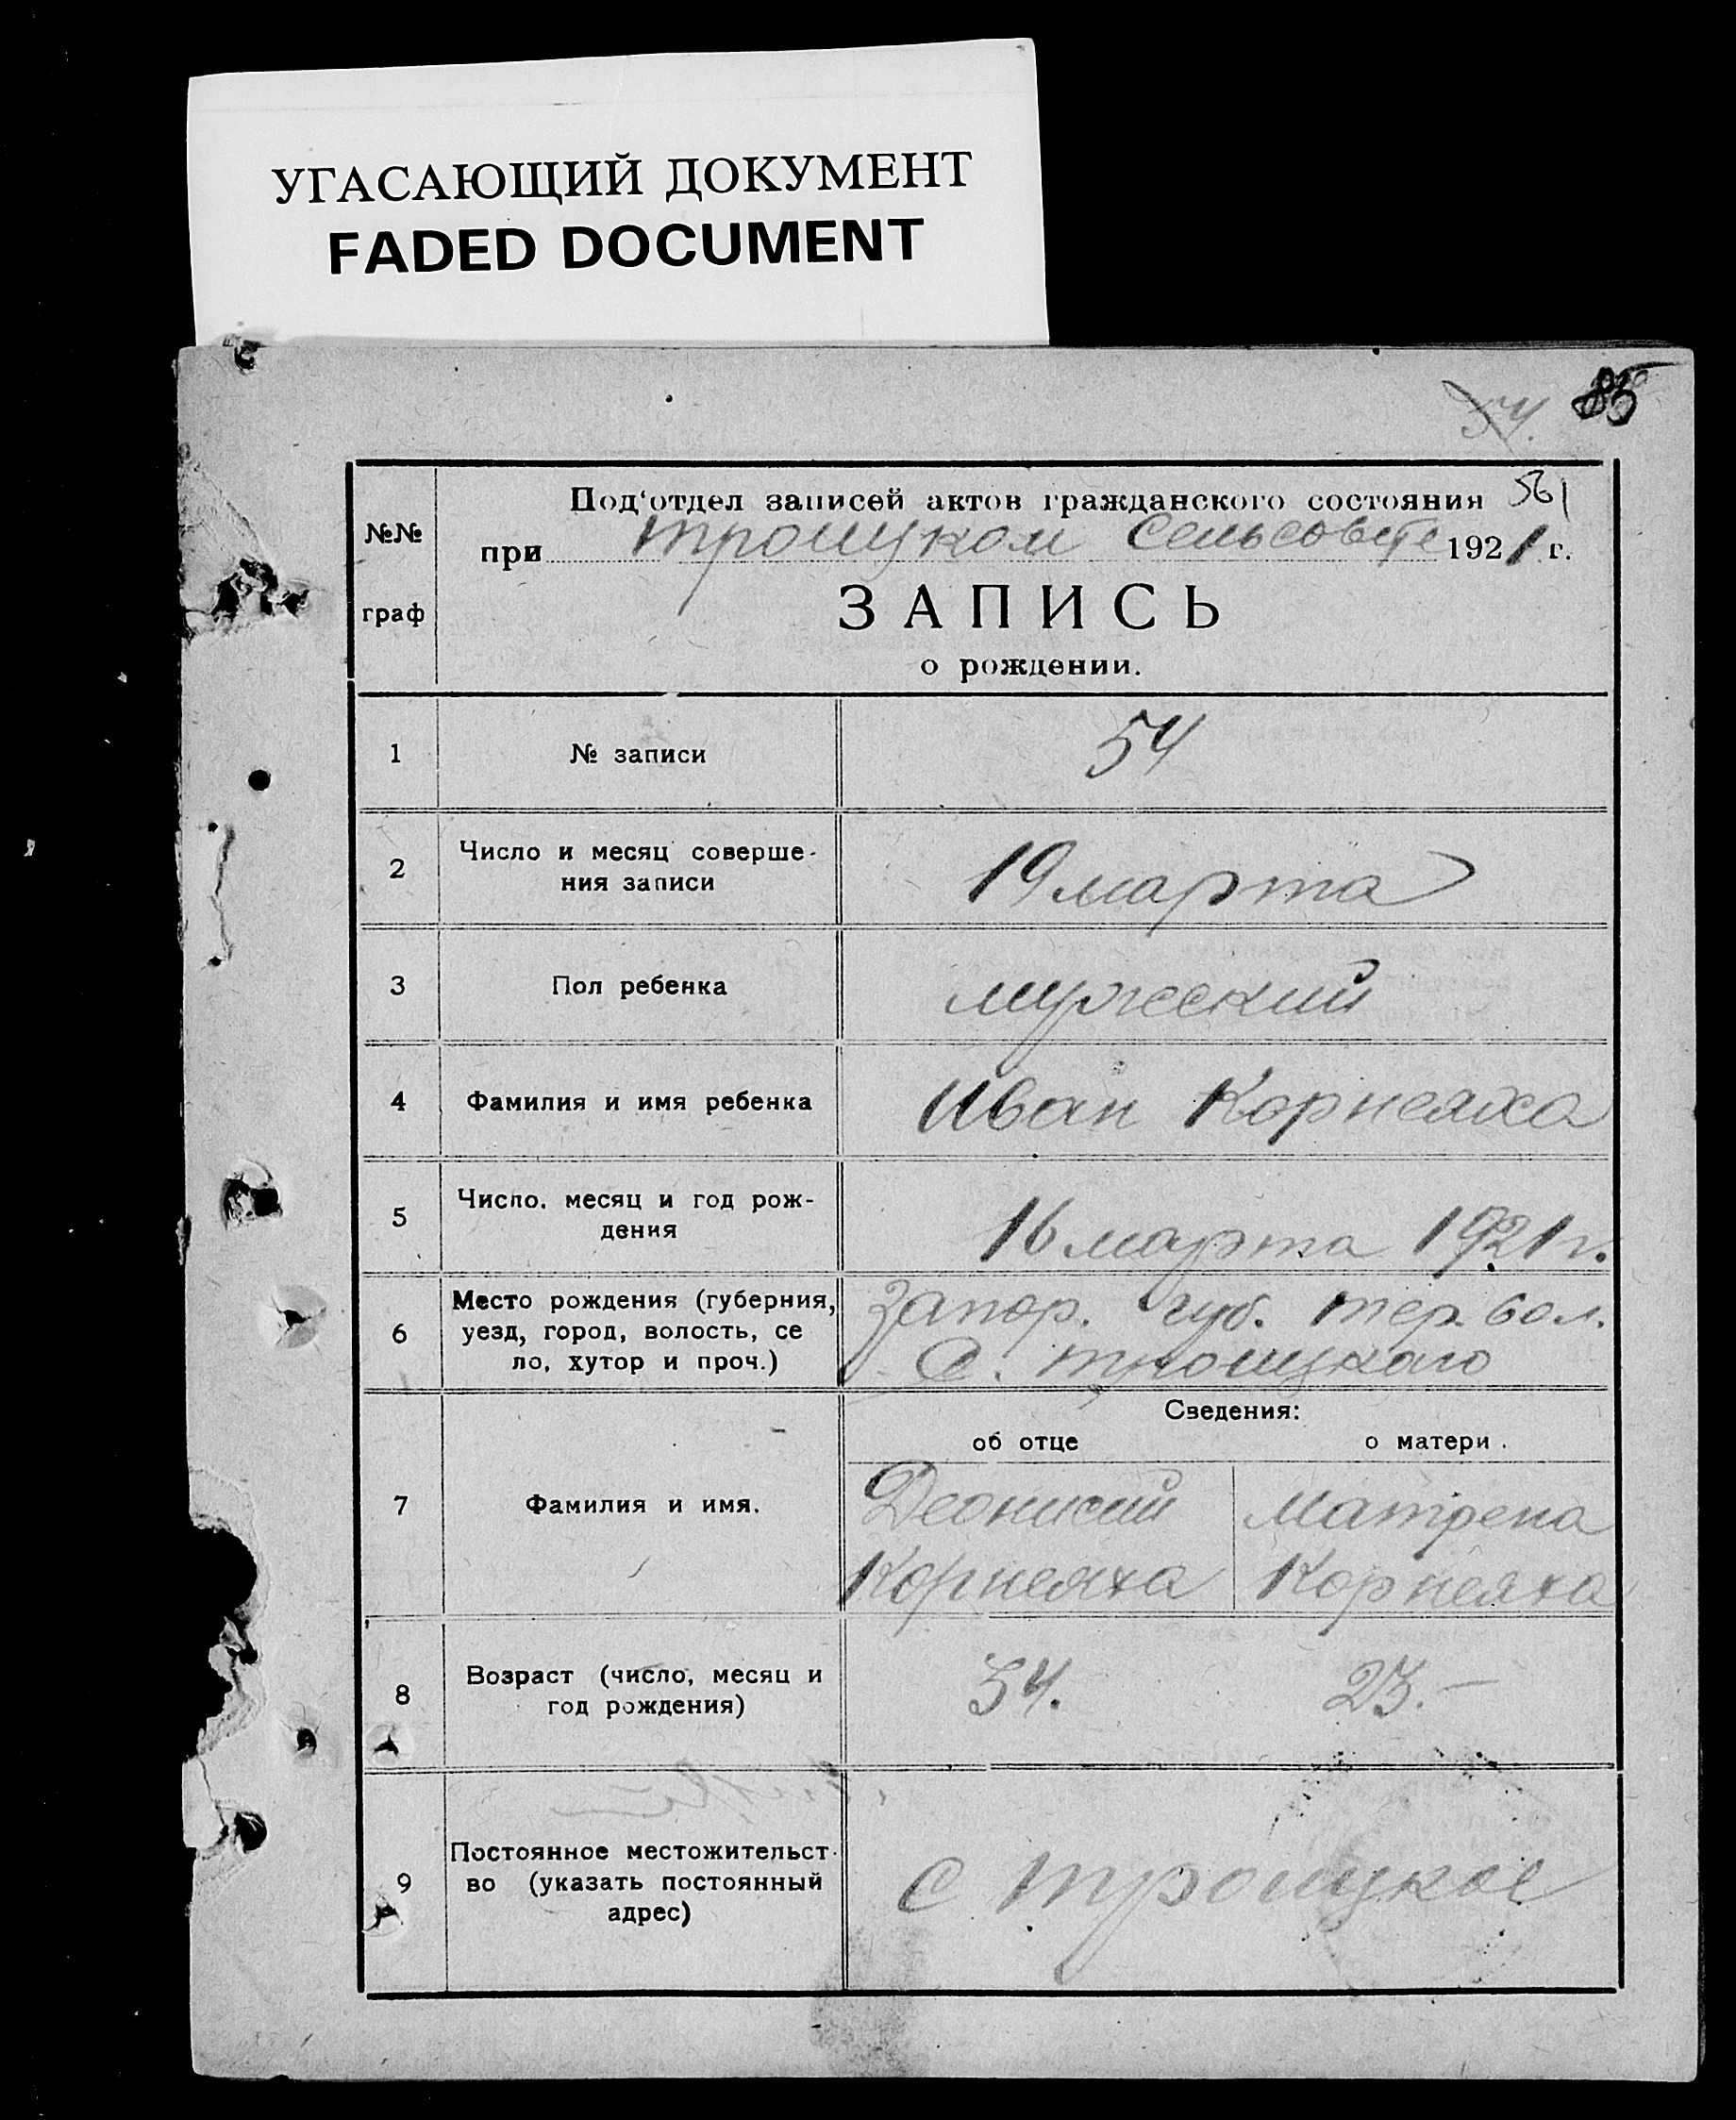 УГАСАЮЩИЙ ДОКУМЕНТ
FADED DOCUMENT
54. 85
№№
граф
Под‘отдел записей актов гражданского состояния 561
при Троицком сельсовете 1921 г.
ЗАПИСЬ
о рождении.
1 № записи 54
2 Число и месяц соверше-
ния записи 19 марта
3 Пол ребенка мужеский
4 Фамилия и имя ребенка Иван Корнеяха
5 Число, месяц и год рож-
дения 16 марта 1921 г.
6 Место рождения (губерния,
уезд, город, волость, се
ло, хутор и проч.)
Запор. губ. тер. вол.
С. Троицкаго
Сведения:
об отце о матери.
7 Фамилия и имя.
Деонисий Матрена
Корнеяха Корнеяха
8 Возраст (число, месяц и
год рождения)
34. 23.-
9 Постоянное местожительст-
во (указать постоянный
адрес)
с Троицкое